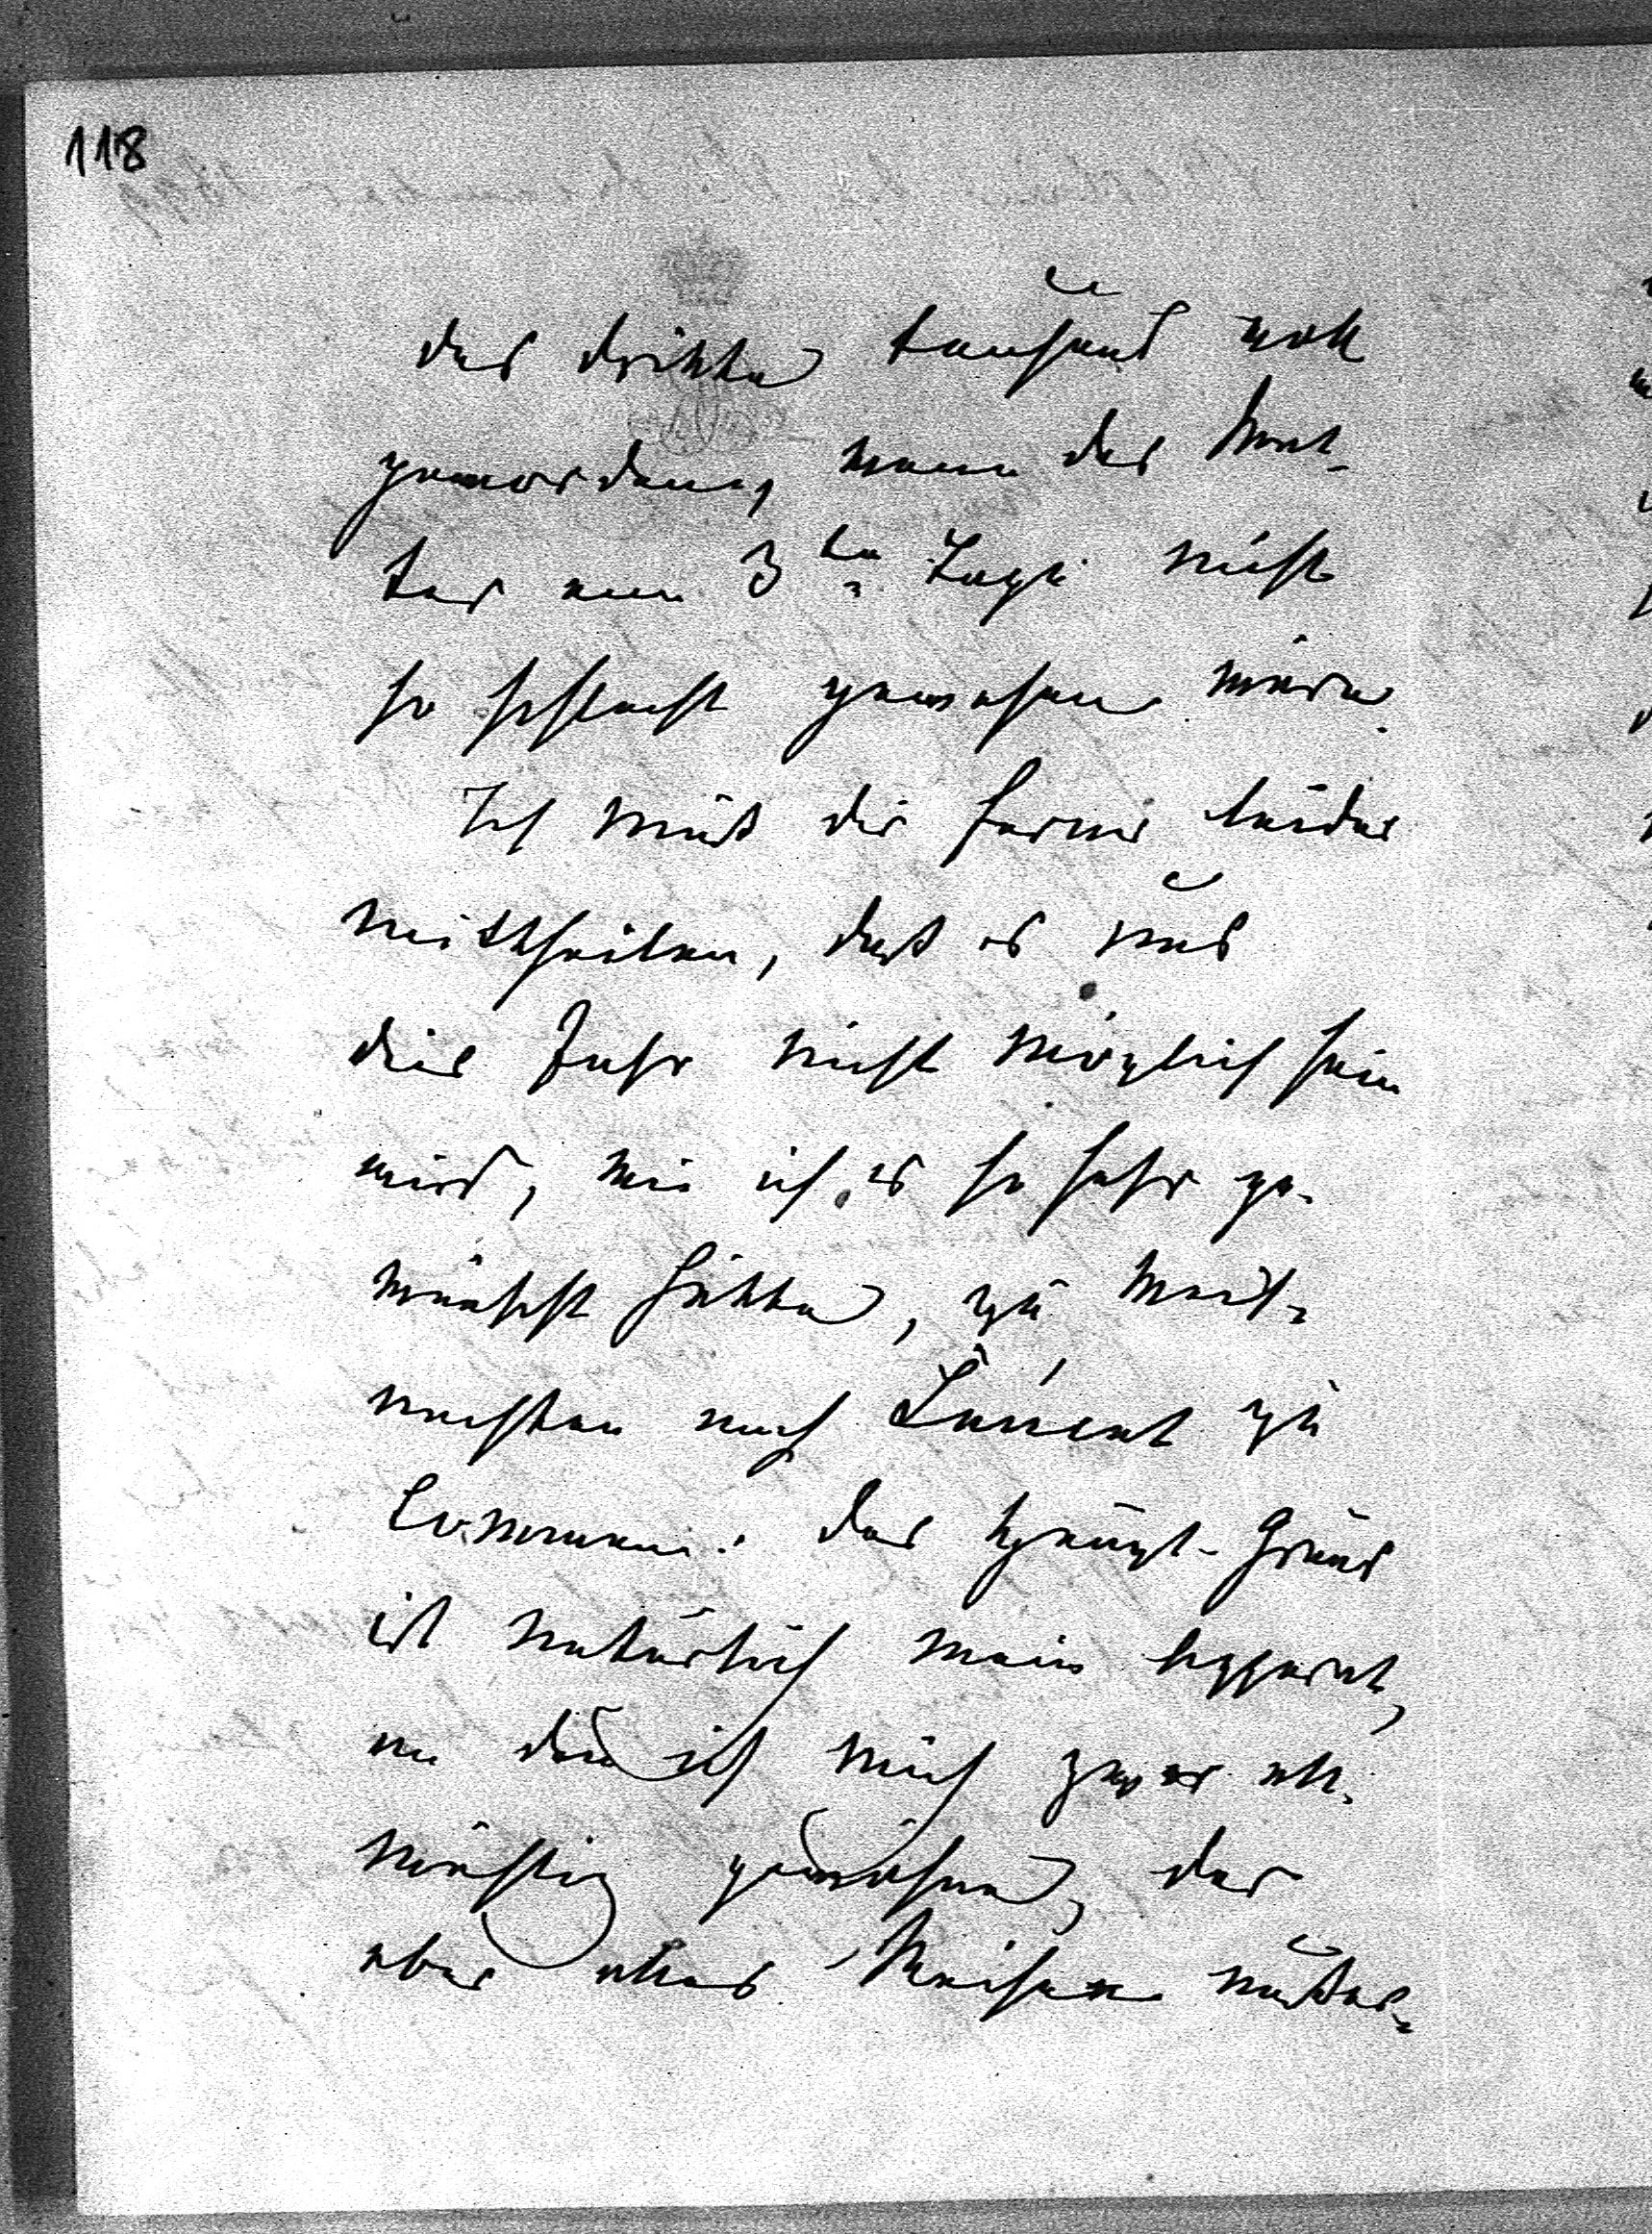 118
das dritte tausend voll
geworden, wenn das Wet-
ter am 3ten Tage nicht
so schlecht gewesen wäre.
Ich muß dir ferner leider
mittheilen, daß es uns
dies Jahr nicht möglich sein
wird, wie ich es so sehr ge-
wünscht hätte, zu Weih-
nachten nach zu
kommen. Der Haupt-Grund
ist natürlich mein Apparat,
an den ich mich zwar all-
mählig gewöhne, der
aber alles Reisen